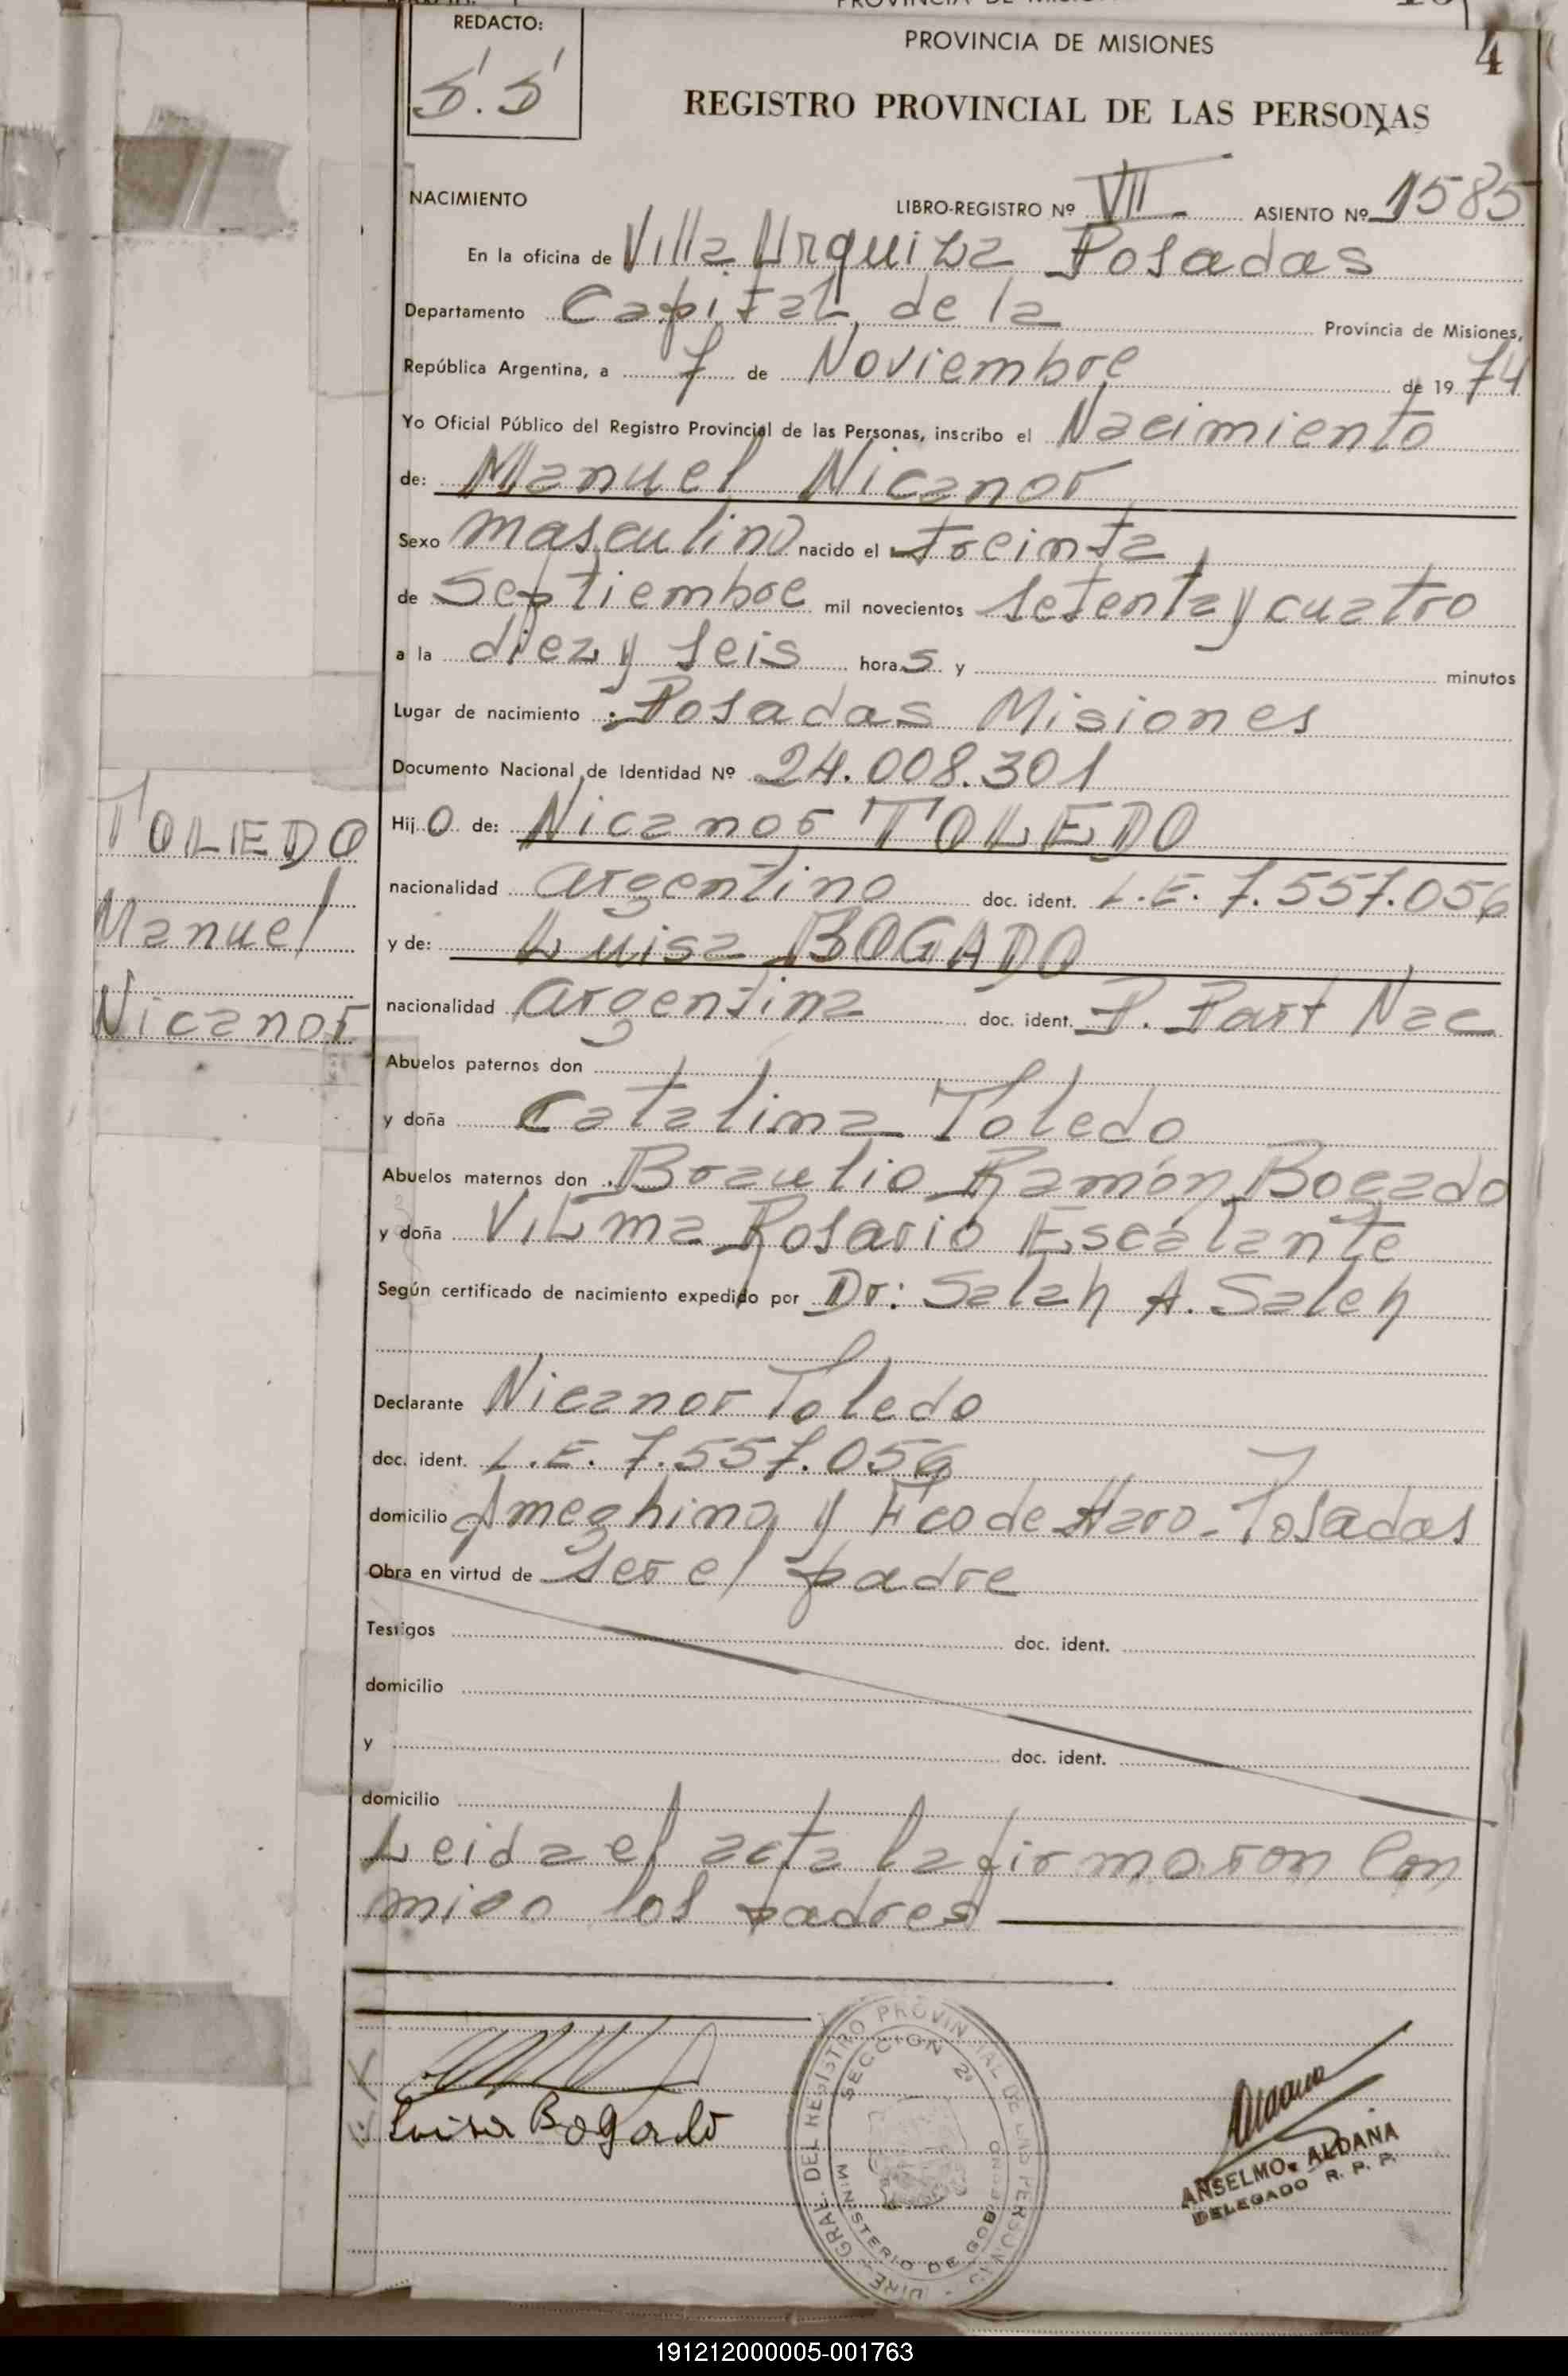 REDACTO:
S'. S'
PROVINCIA DE MISIONES
4
REGISTRO PROVINCIAL DE LAS PERSONAS
NACIMIENTO LIBRO-REGISTRO Nº VII ASIENTO Nº 1585
En la oficina de Villa Urquiza Posadas
Departamento Capital de la Provincia de Misiones,
República Argentina, a 7 de Noviembre de 19 74
Yo Oficial Público del Registro Provincial de las Personas, inscribo el Nacimiento
de: Manuel Nicanor
Sexo masculino nacido el treinta
de Septiembre mil novecientos setenta y cuatro
a la diez y seis horas y minutos
Lugar de nacimiento Posadas Misiones
Documento Nacional de Identidad Nº 24.008.301
Hijo de: Nicanor TOLEDO
nacionalidad argentino doc. ident. L.E. 7.557.056
y de: Luisa BOGADO
nacionalidad argentina doc. ident. P. Part Nac
Abuelos paternos don
y doña Catalina Toledo
Abuelos maternos don Braulio Ramón Bogado
y doña Vilma Rosario Escalante
Según certificado de nacimiento expedido por Dr: Salah A. Saleh
Declarante Nicanor Toledo
doc. ident. L.E. 7.557.056
domicilio Ameghino y Fco de Haro - Posadas
Obra en virtud de ser el padre
Testigos doc. ident.
domicilio
y doc. ident.
domicilio
Leida el acta la firmaron con
migo los padres
TOLEDO
Manuel
Nicanor
Luisa Bogado
DIRE. GRAL. DEL REGISTRO PROVINCIAL DE LAS PERSONAS
SECCION 2ª
MINISTERIO DE GOBIERNO
ANSELMO ALDANA
DELEGADO R. P. P.
191212000005-001763